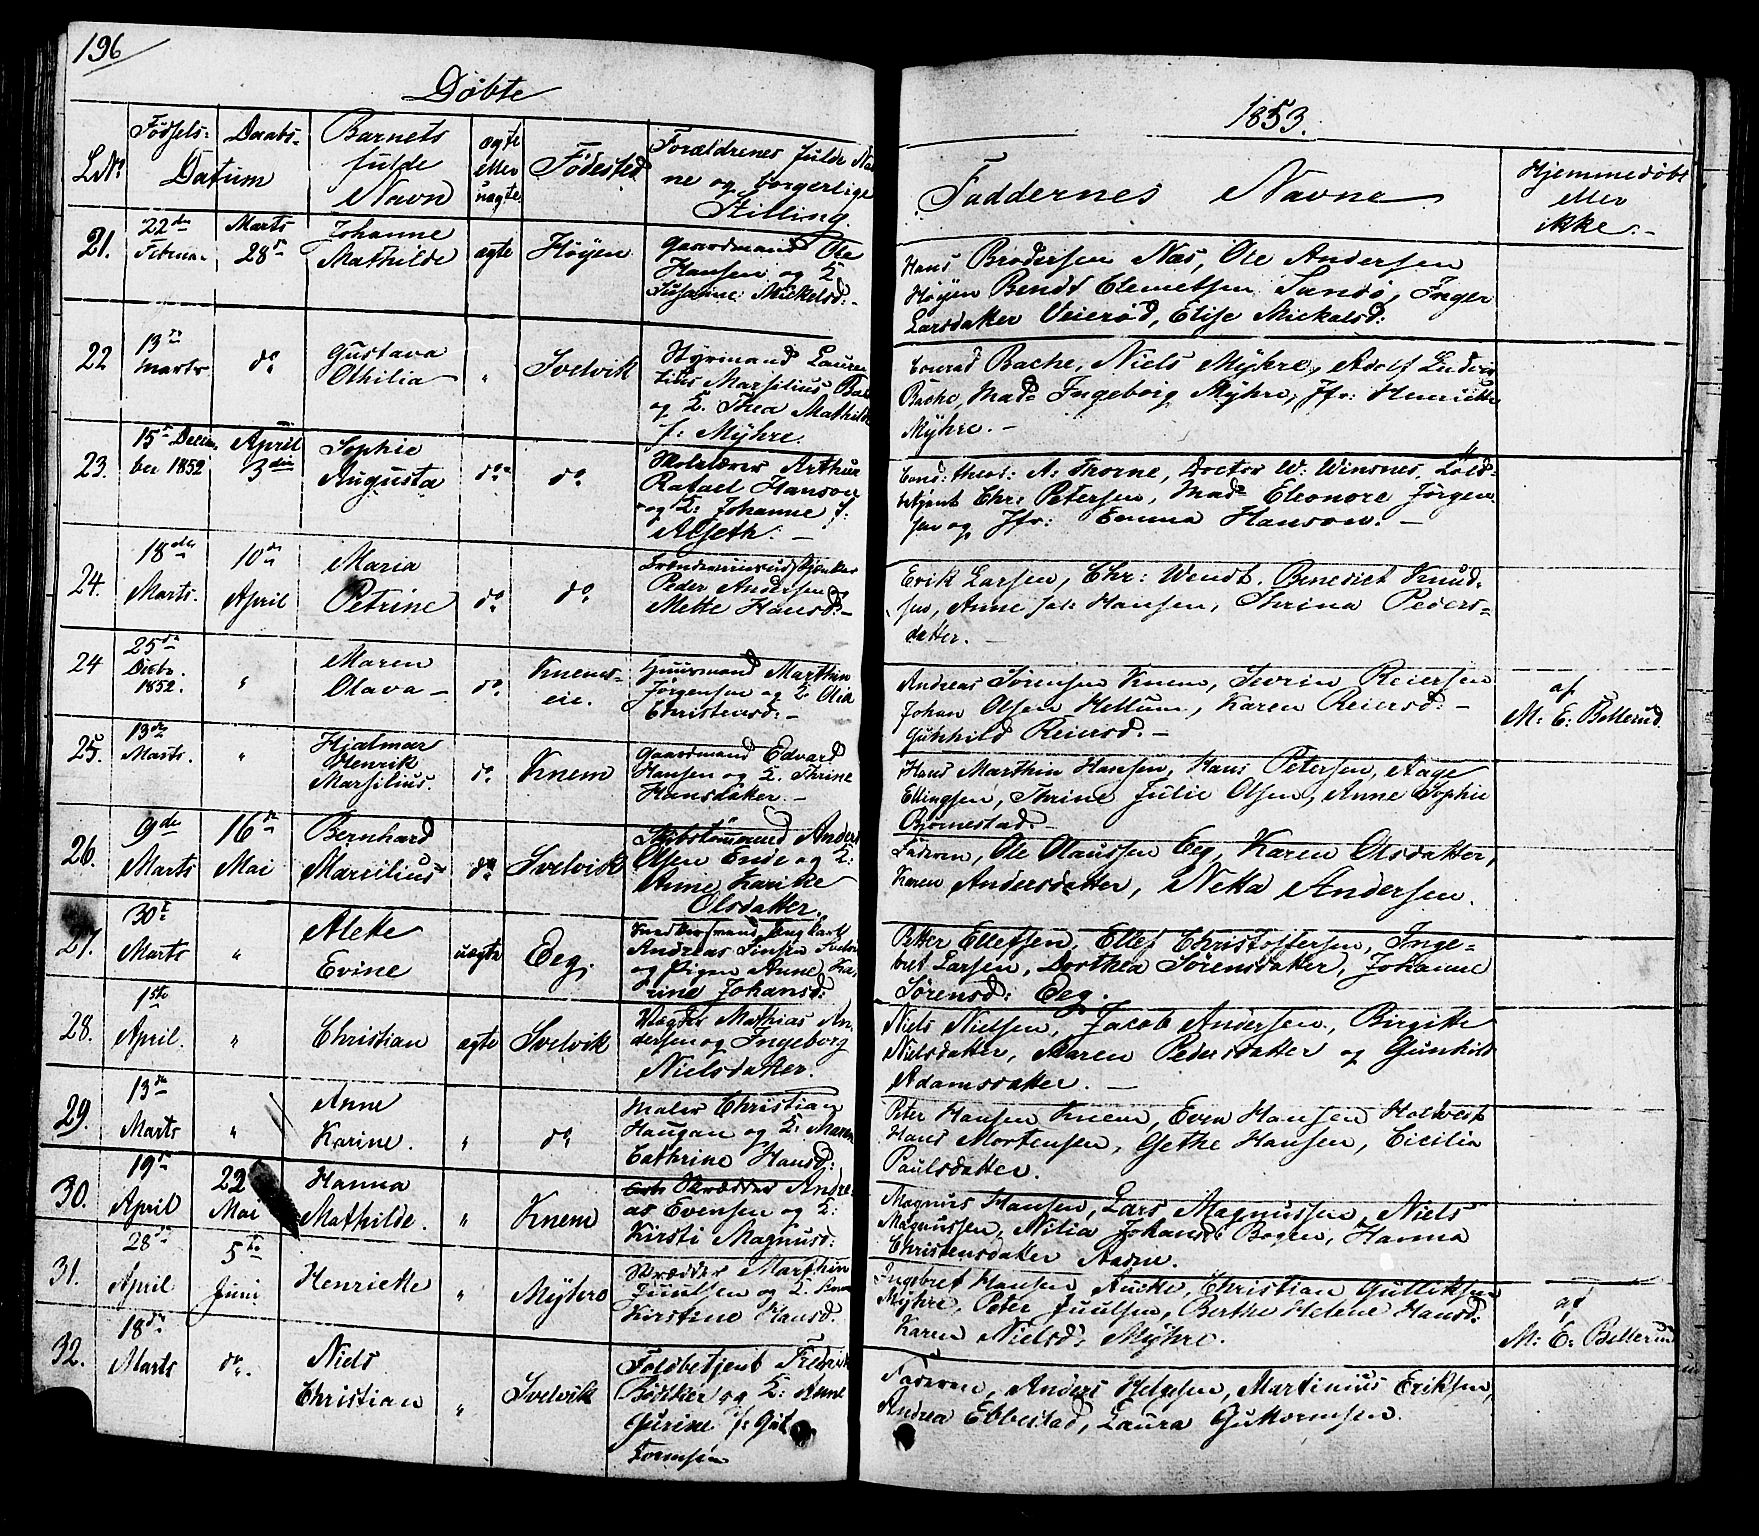 196
Døbte
1853.
LNo
Fødsels-
Daabs-
Datum
Barnets
fulde
Navn
ægte
eller
uægte
Fødested
Forældrenes fulde Nav
ne og borgerlige
Stilling
Faddernes Navne
Hjemmedøbt
eller
ikke.-
21.
22de
Februar
Marts
28de
Johanne
Mathilde
ægte
Høÿen
Gaardmand Ole
Hansen og K.
Susanne Mickelsd:-
Hans Brodersen Næs, Ole Andersen
Høÿen Bendt Clemetsen Sandø, Inger
Larsdatter Veierød, Elise Mickelsd:
22
13de
Marts
do
Gustava
Othilia
"
Svelvik
Styrmand Lauren
titus Marsilius Bac
og K. Thea Mathilde
f: Mÿhre.
Conrad Bache, Niels Mÿhre, Adolf Ludvig
Bache, Made Ingeborg Mÿhre, Jfr: Henriette
Mÿhre.-
23.
15de Decem
ber 1852
April
3die
Sophie
Augusta
do
do
Skolelærer Arthur
Rafael Hanson
og K: Johanne f:
Alseth.-
Cand: theol: A: Thorne, Doctor W: Winsnes, Told-
betjent Chr: Petersen, Made Eleonore Jørgen
sen og Jfr: Emma Hanson.-
24.
18de
Marts.
10de
April
Maria
Petrine
do
do
Brændeviinsudskjænker
Peder Andersen og
Mette Hansd:-
Erik Larsen, Chr: Wendt. Benedict Knud-
sen, Anne Hansen, Thrina Peders-
datter.-
24
25de
Decbr.
1852.
"
Maren
Olava-
do
Knems-
eie.
Huusmand Marthin
Jørgensen og K. Olea
Christensd:-
Andreas Sørensen Knem, Severin Reiersen
Johan Olsen Hellum, Karen Reiersd:-
Gunhild Reiersd.-
af
M. E. Bellerud
25.
13de
Marts.
"
Hjalmar
Henrik
Marsilius.
do
Knem
Gaardmand Edvard
Hansen og K. Thrine
Hansdatter.-
Hans Marthin Hansen, Hans Petersen, Aage
Ellingsen, Thrine Julie Olsen, Anne Sophie
Bjørnestad.-
26.
9de
Marts
16de
Mai
Bernhard
Marsilius
do
Svelvik
Skibstømmermand Anders
Olsen Ende og K:
Anne Karine
Olsdatter.
Faderen, Ole Olaussen Eeg, Karen Olsdatter,
Karen Andersdatter, Netta Andersen.
27.
30te
Marts
"
Alette
Evine
uægte
Eeg.
Andreas
og Pigen Anne Ka
rine Johansd:
Petter Ellefsen, Ellef Christoffersen, Inge-
bret Larsen, Dorthea Sørensdatter, Johanne
Sørensd: Eeg.
28.
1ste
April.
"
Christian
ægte
Svelvik
Vægter Mathias An
dersen og Ingeborg
Nielsdatter.
Niels Nielsen, Jacob Andersen, Birgitte
Nielsdatter, Maren Pedersdatter og Gunhild
Adamsdatter.-
29.
13de
Marts
"
Anne
Karine.
"
do
Maler Christian
Haugan og K: Maren
Cathrine Hansd:
Peter Hansen Knem, Even Hansen Holtvedt
Hans Mortensen, Gethe Hansen, Cicilia
Paulsdatter.
30.
19de
April
22
Mai
Hanna
Mathilde.
"
Knem
Skrædder Andre-
as Evensen og K:
Kirsti Magnusd:
Magnus Hansen, Lars Magnussen, Niels
Magnussen, Nilia Johansd: Bogen, Hanna
Christensdatter Aasne.
31.
28de
April
5te
Juni
Henriette
"
Mÿhre
Skrædder Marthin
Juulsen og K.
Kirstine Hansd.
Ingebret Hansen Aucke, Christian Gulliksen
Mÿhre, Peter Juulsen, Berthe Helene Hansd:
Karen Nielsd: Mÿhre.
af
M: E: Bellerud
32.
18de
Marts
do
Niels
Christian
"
Svelvik
Toldbetjent Fredrik
Bødtker og K: Anne
Gurine f: Gut
tormsen
Faderen, Anders Helgesen, Martinius Eriksen,
Andrea Ebbestad, Laura Guttormsen.